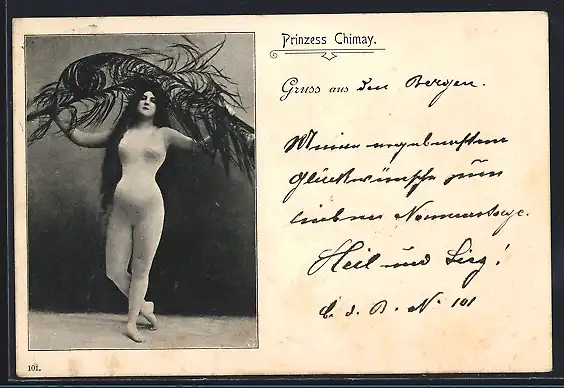 Prinzess Chimay.
Gruss aus den Bergen.
Meine ergebensten
Glückwünsche zum
lieben Namenstage.
Heil und Sieg!
C. d. B. No 101
101.